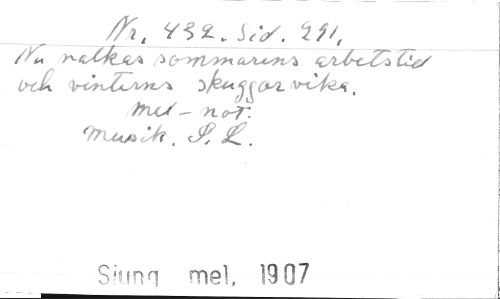 Nr. 432. Sid. 291.
Nu nalkas sommarens arbetstid
och vinterns skuggor vika.
mel-not.
Musik. S. L.
Sjung mel. 1907